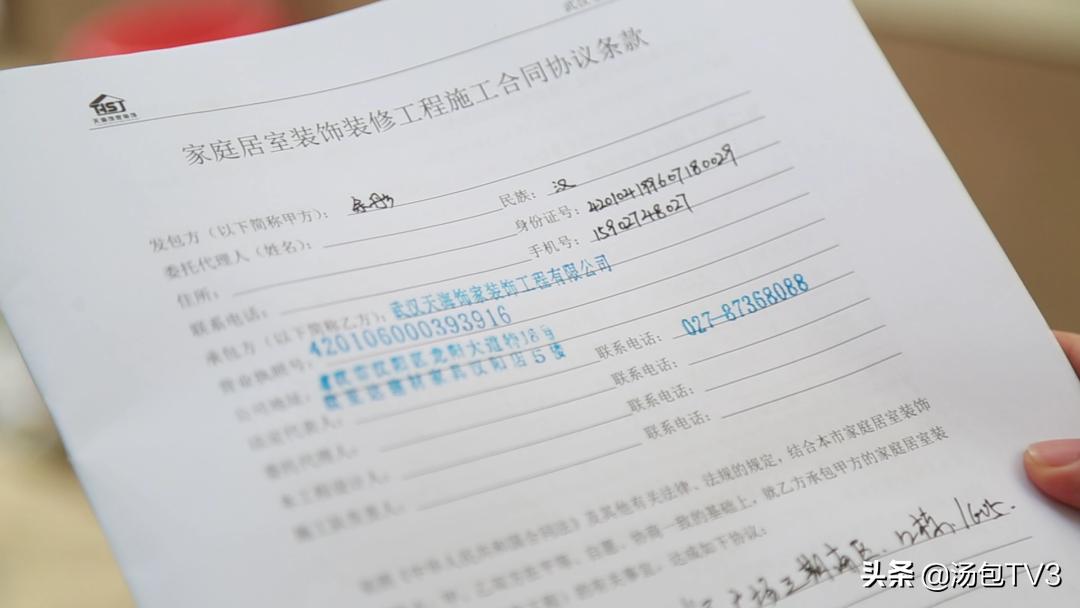 武汉
HSJ
家庭居室装饰装修工程施工合同协议条款
发包方（以下简称甲方）： 民族：汉
委托代理人（姓名）： 身份证号：420104199607180029
住所： 手机号：15902748027
联系电话：
承包方（以下简称乙方）：武汉天海饰家装饰工程有限公司
营业执照号：420106000393916
公司地址：武汉市汉阳区龙阳大道特16号 联系电话：027-87368088
店5楼
法定代表人： 联系电话：
委托代理人： 联系电话：
本工程设计人： 联系电话：
施工队负责人：
依照《中华人民共和国合同法》及其他有关法律、法规的规定，结合本市家庭居室装饰
甲、乙双方在平等、自愿、协商一致的基础上，就乙方承包甲方的家庭居室装
的有关事宜，达成如下协议：
广场三期 栋 1605.
头条 @汤包TV3